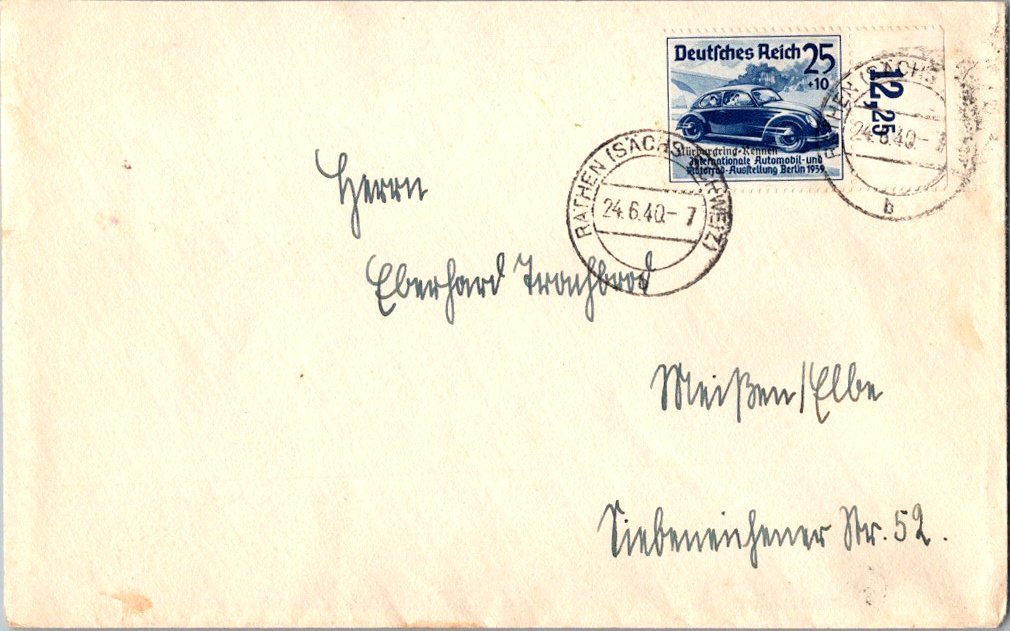 Deutsches Reich 25
+10
Nürburgring-Rennen
Internationale Automobil- und
Motorrad-Ausstellung Berlin 1939
12,25
RATHEN (SÄCHS. SCHWEIZ)
24.6.40-7
b
RATHEN (SÄCHS
24.6.40-7
b
Herrn
Eberhard Trachbrod
Meißen/Elbe
Siebeneichener Str. 52.